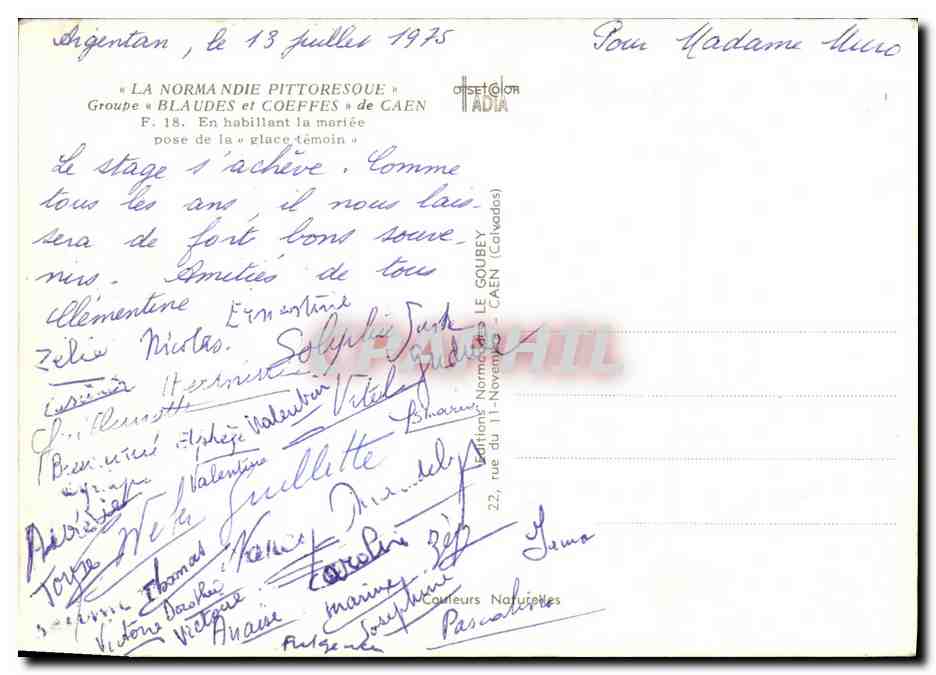 Argentan, le 13 juillet 1975 Pour Madame Muro
« LA NORMANDIE PITTORESQUE »
Groupe « BLAUDES et COEFFES » de CAEN
F. 18. En habillant la mariée
pose de la « glace témoin »
OFFSETCOLOR
IADIA
Le stage s'achève. Comme
tous les ans, il nous lais-
sera de fort bons souve-
nirs. Amitiés de tous
Clémentine Ernestine
Zélie Nicolas.
Guillemette
Bienvenue Elphège Valentin Vital
Valentine
Guillette
Thomas Caroline Zép
Victoire Dorothée Victoire Anaïse Marine Joséphine
Fulgence Pascaline
Editions Normandes LE GOUBEY
22, rue du 11-Novembre - CAEN (Calvados)
Couleurs Naturelles
CPAPHIL